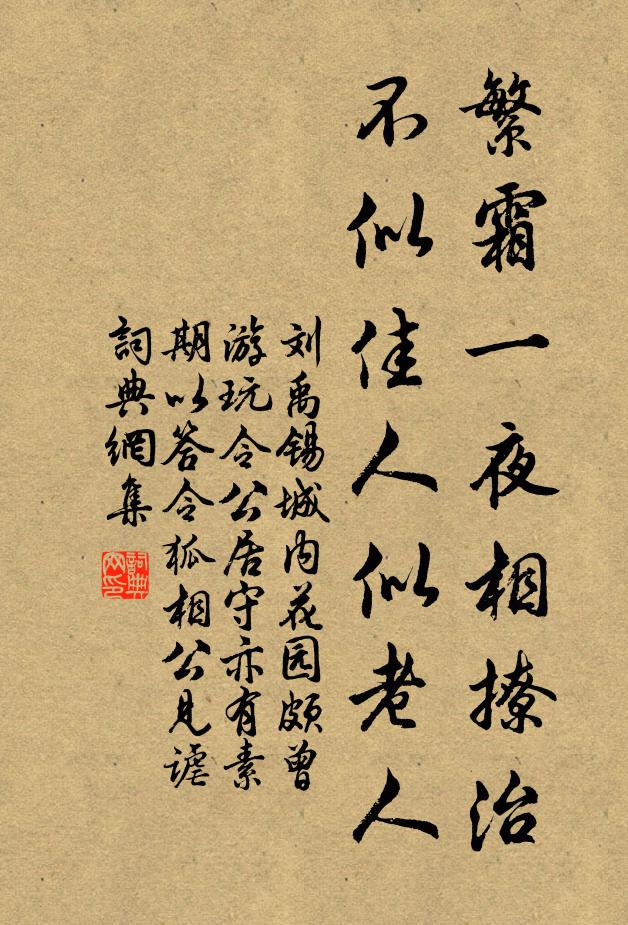 繁霜一夜相撩治
不似佳人似老人
刘禹锡城内花园颇曾
游玩令公居守亦有素
期以答令狐相公见谑
詞典網集
詞典
网印